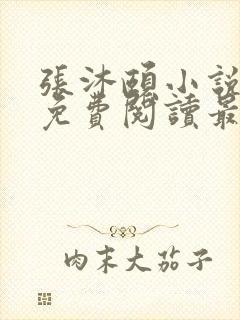 張沐頤小說
免費閱讀最
肉末大茄子